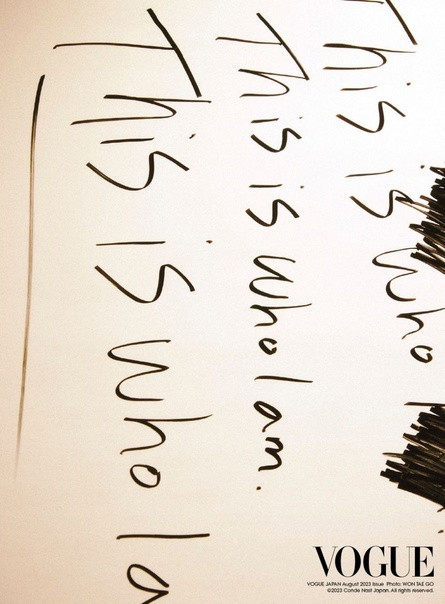 This is who I
This is who I am.
This is who I a
VOGUE
VOGUE JAPAN August 2023 Issue Photo: WON TAE GO
©2023 Conde Nast Japan. All rights reserved.